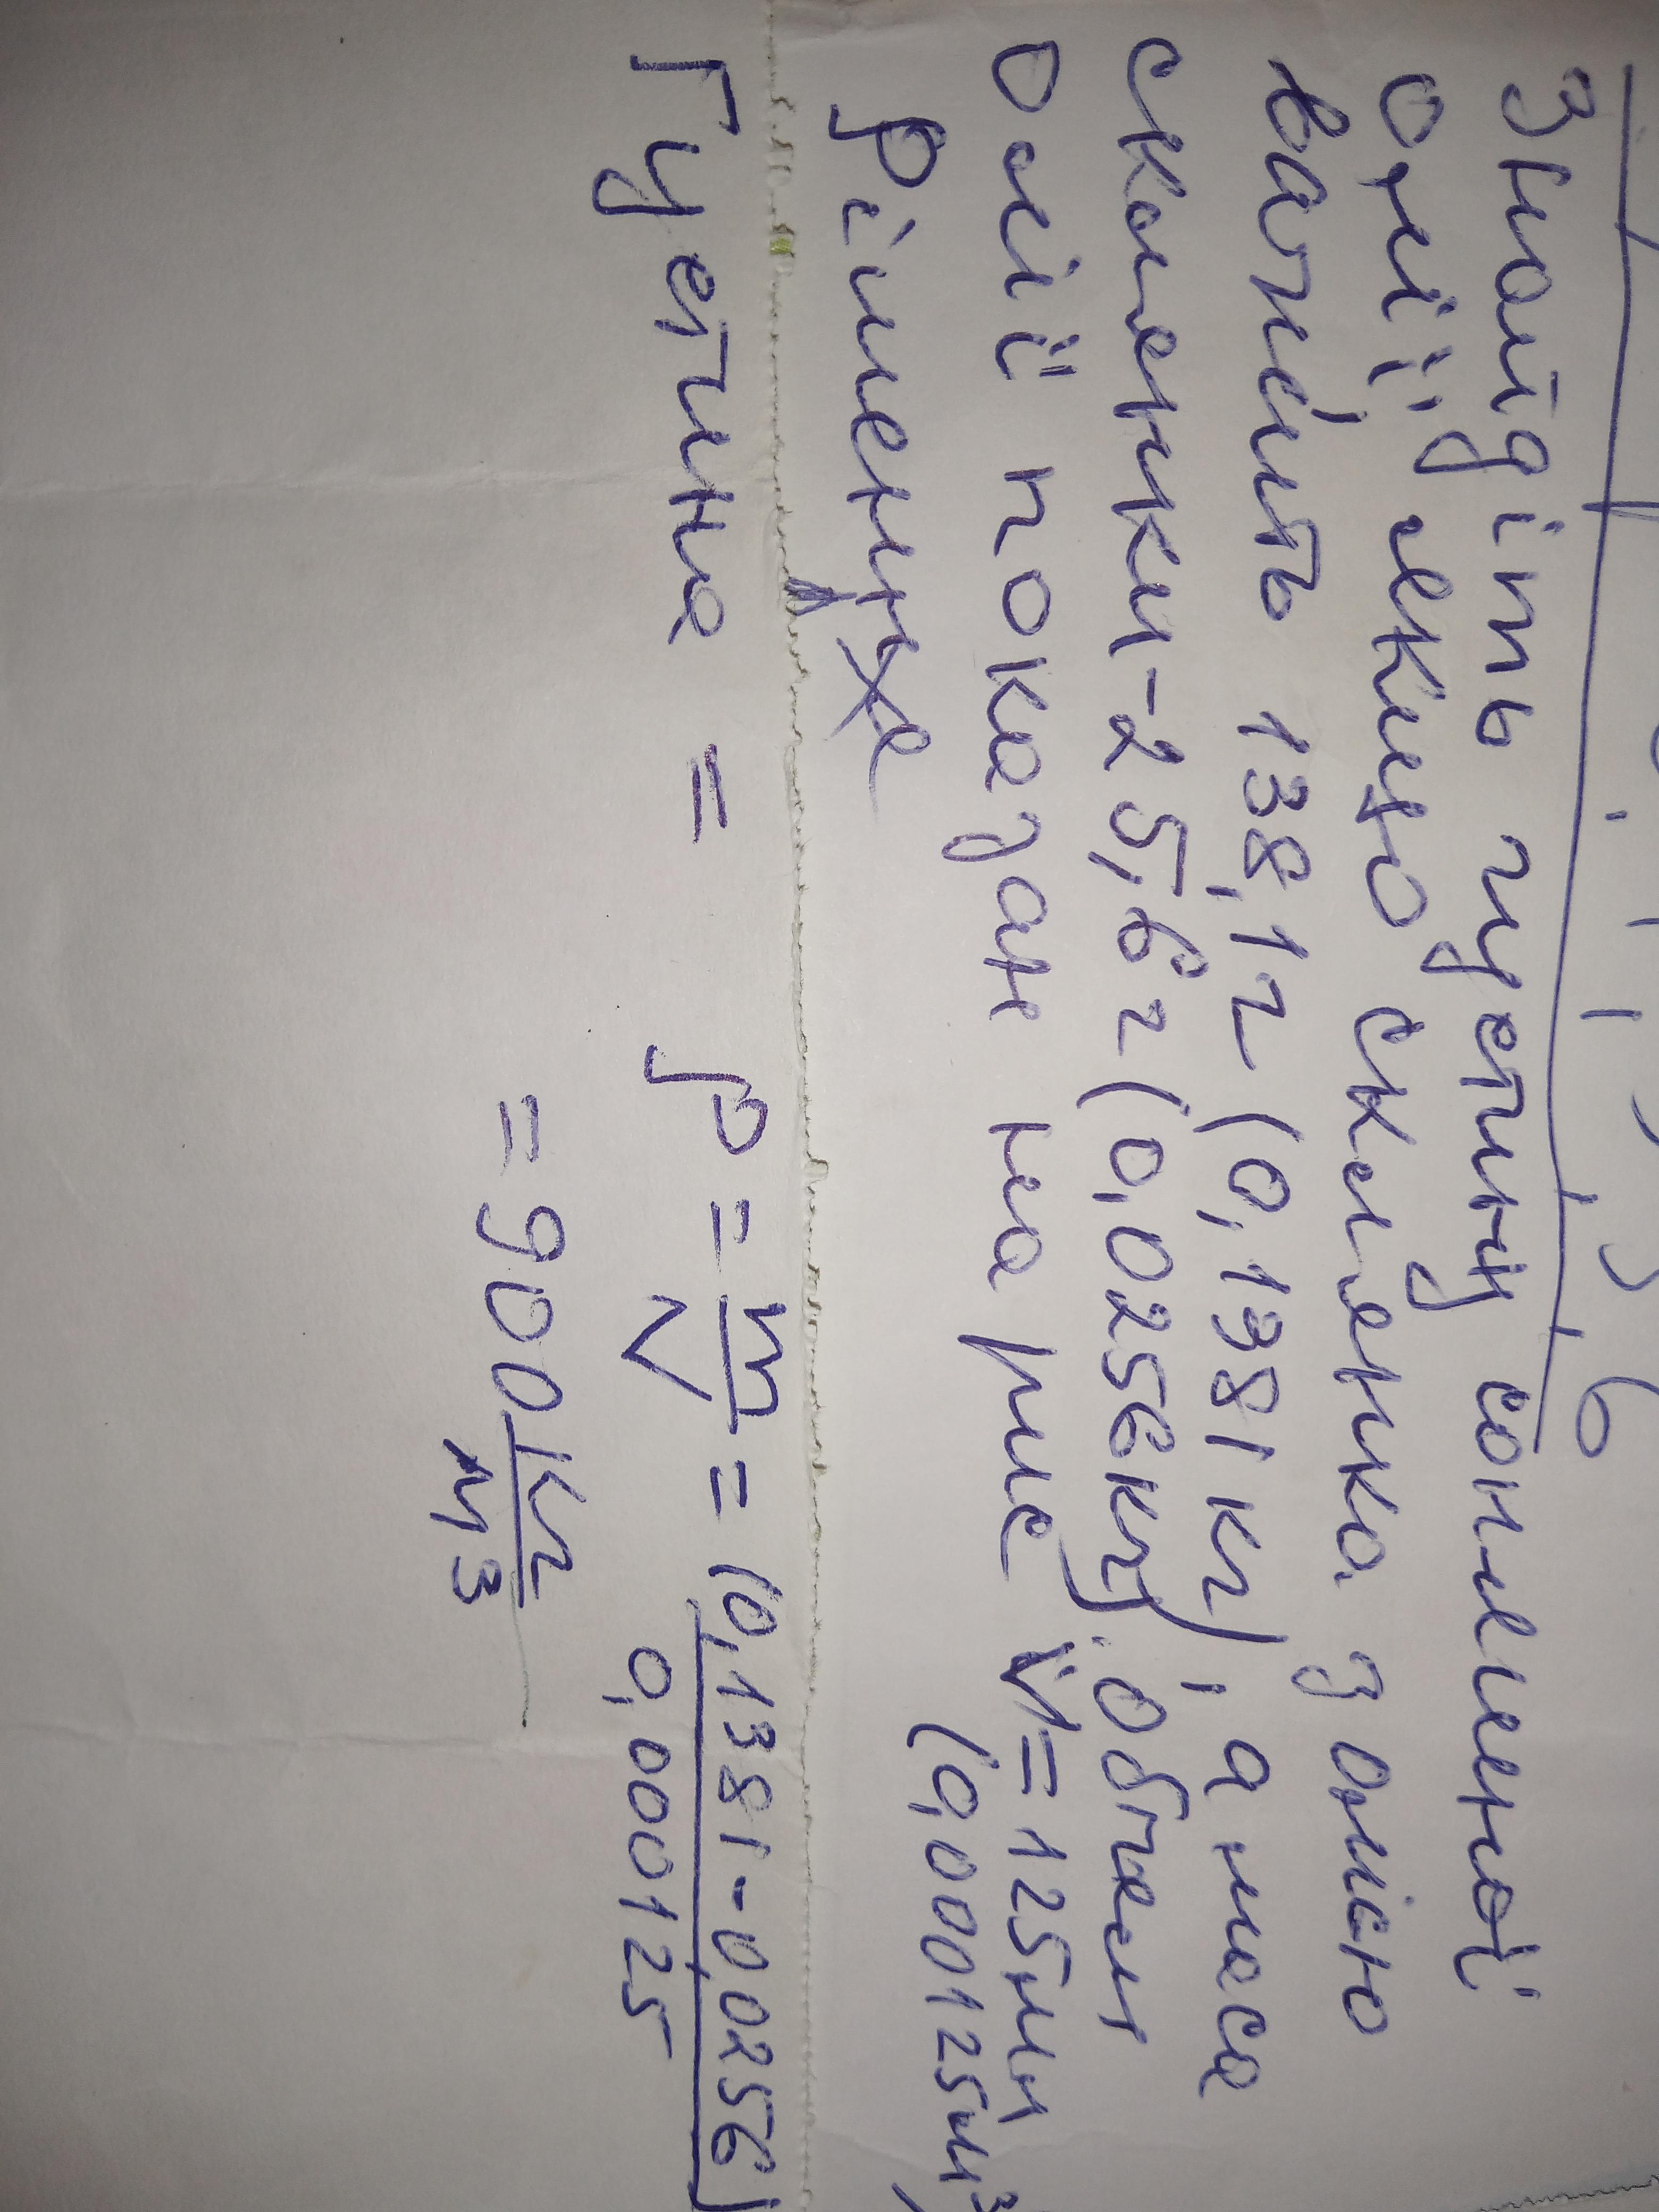 Знайдіть густину соняшникової
олії, якщо склянка з олією
важить 138,1г (0,1381 кг), а маса
склянки - 25,6г (0,0256кг). Обʼєм
олії показан на рис V=125мл
(0,000125м³)
Рішення
Густина = ρ = m/V = (0,1381-0,0256)/0,000125
= 900 кг/м³